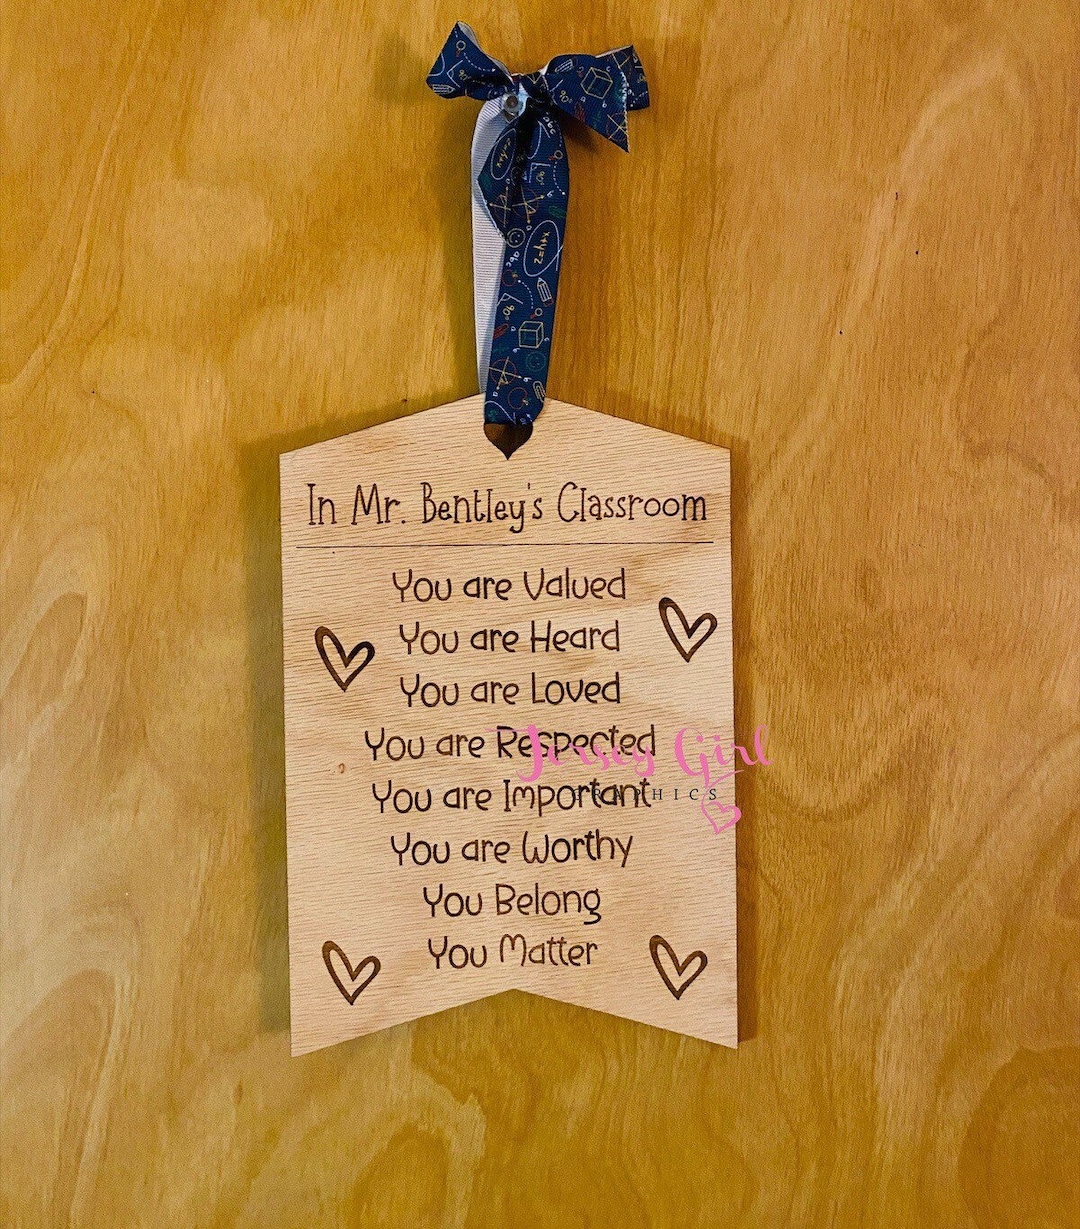 In Mr. Bentley's Classroom
You are Valued
You are Heard
You are Loved
You are Respected
Jersey Girl
You are Important
GRAPHICS
You are Worthy
You Belong
You Matter